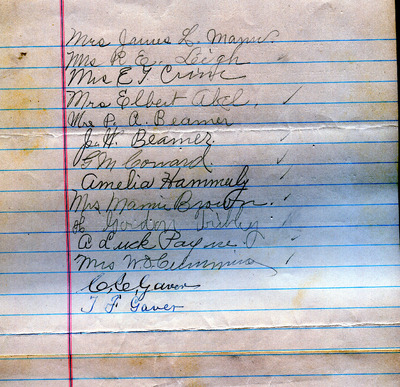 Mrs James L. Mann.
Mrs R E. Leigh
Mrs E T Crane
Mrs Elbert Abel. ✓
Mrs P. A. Beamer
J. H. Beamer. ✓
Coward. ✓
Amelia Hammuly ✓
Mrs Mamie Brown. ✓
Gordon
A Luck Payne ✓
Mrs W D Cummins ✓
C. C. Gaver
T F Gaver